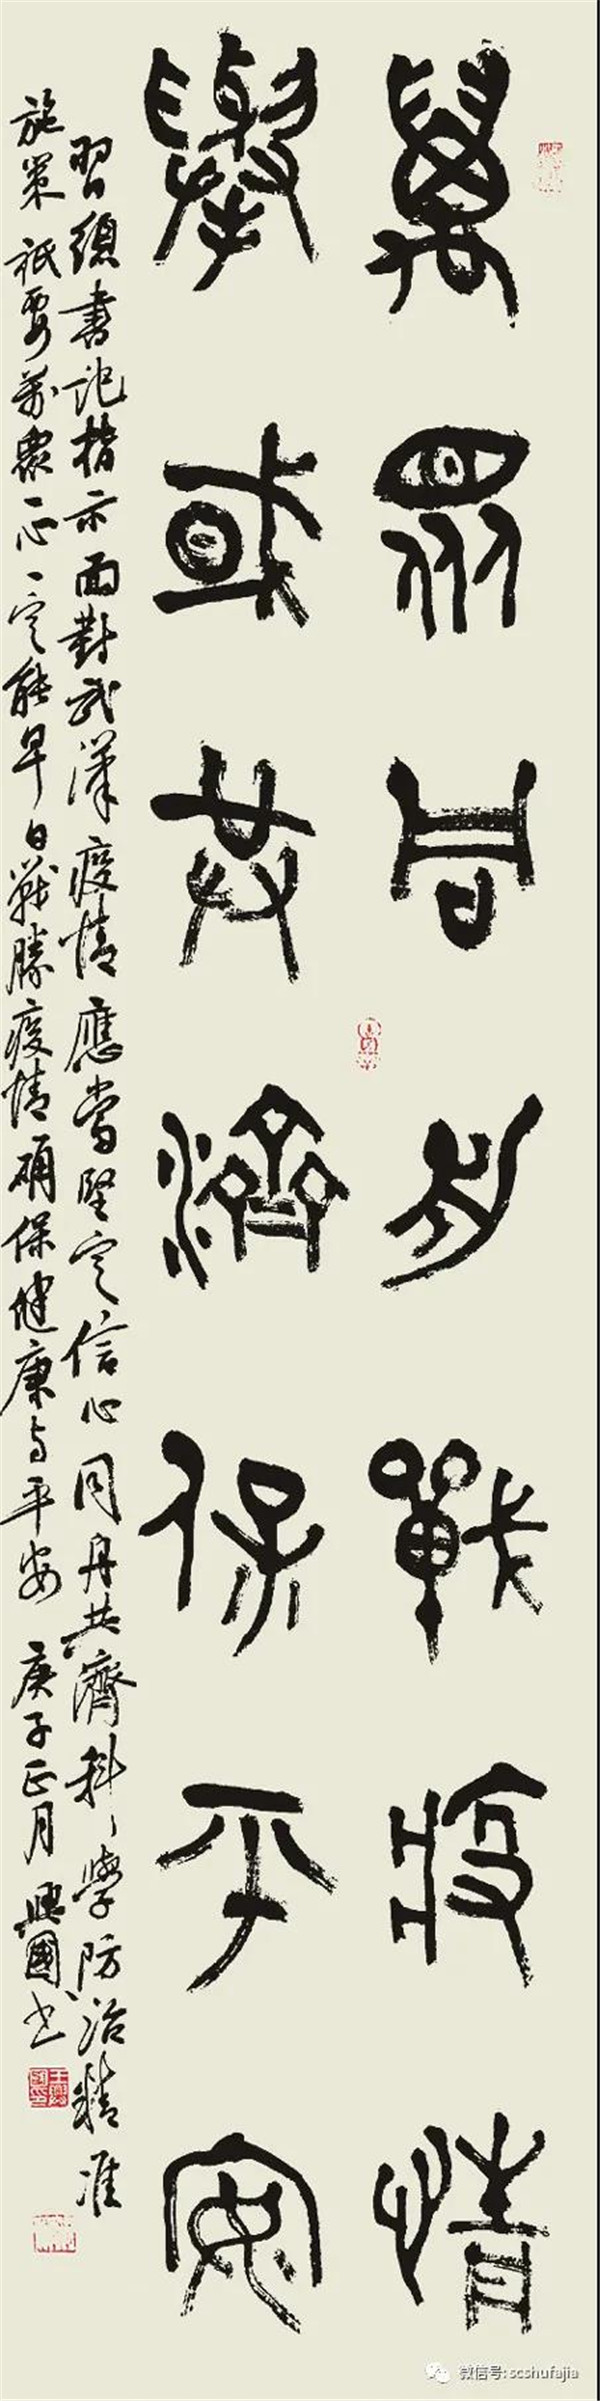 萬衆同力戰疫情
舉國共濟保平安
習總書記指示面對武漢疫情應當堅定信心同舟共濟科學防治精准
施策祇要萬衆一心一定能早日戰勝疫情确保健康与平安 庚子正月 興國书
微信号: scshufajia